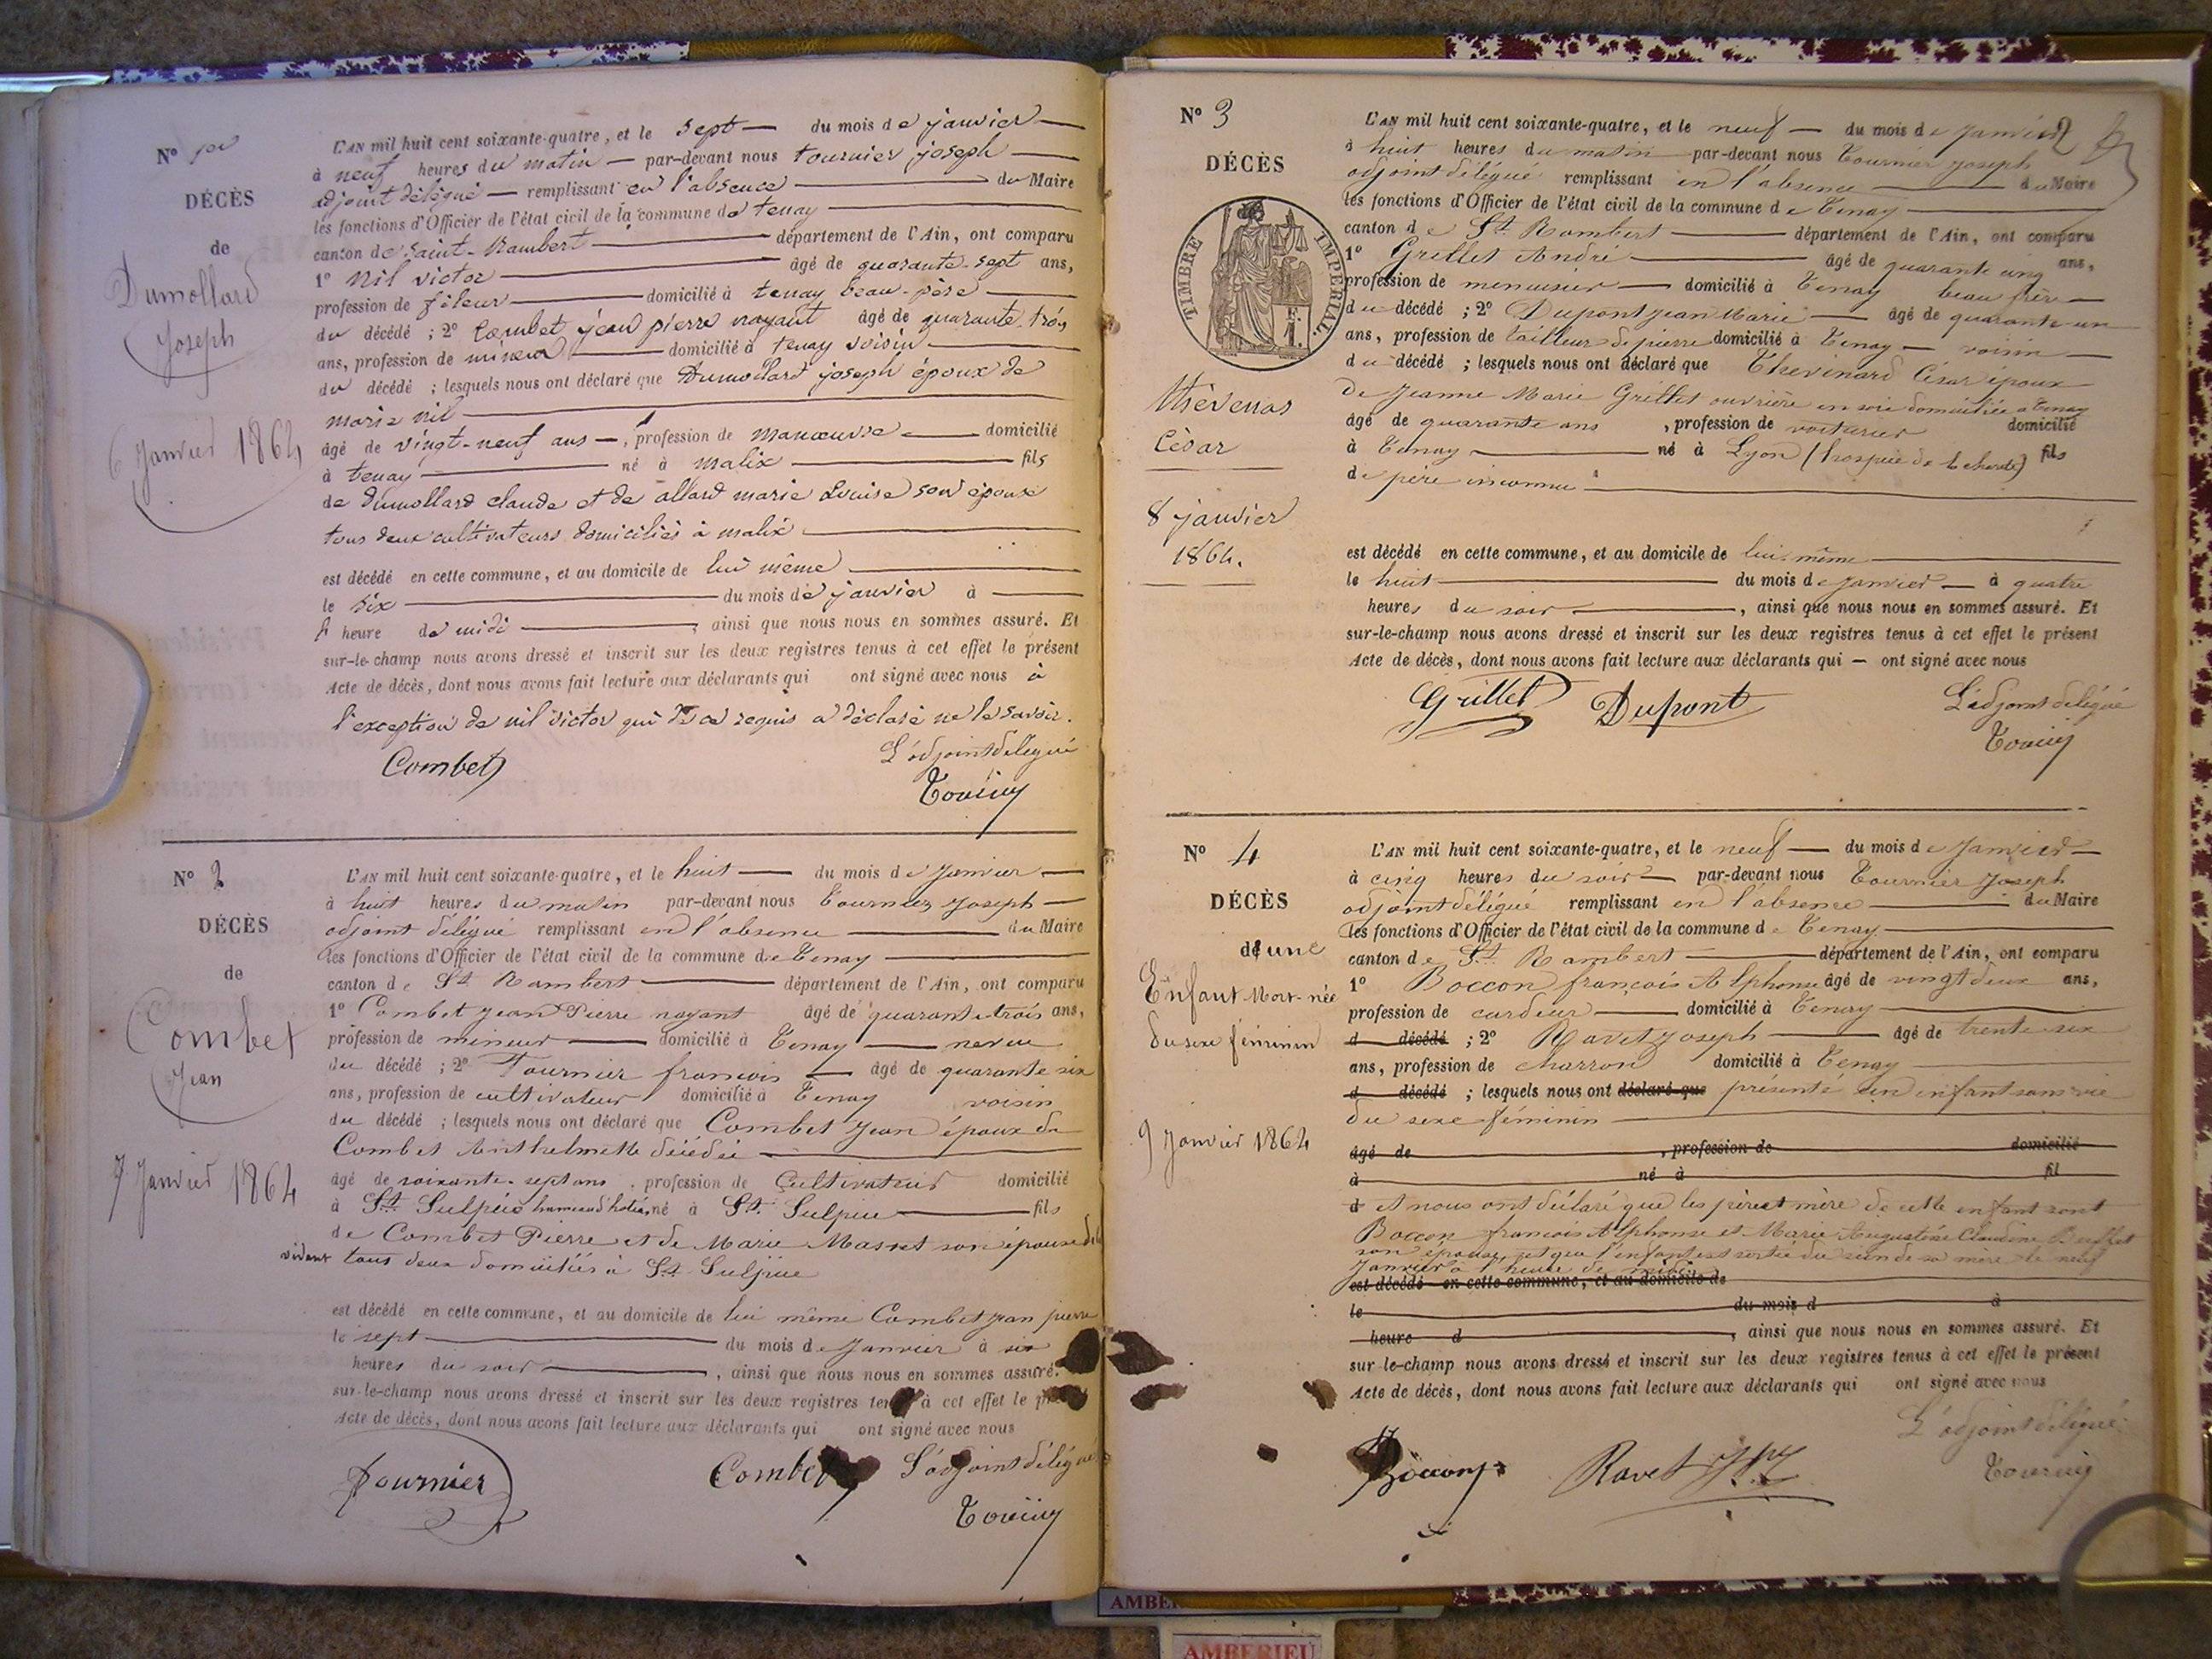 N° 1er
DÉCÈS
de
Dumollard
Joseph
6 Janvier 1864
L'AN mil huit cent soixante-quatre, et le sept du mois de janvier
à neuf heures du matin par-devant nous tournier joseph
adjoint délégué remplissant en l'absence du Maire
les fonctions d'Officier de l'état civil de la commune de tenay
canton de saint-Rambert département de l'Ain, ont comparu
1° Nil victor âgé de quarante-sept ans,
profession de fileur domicilié à tenay beau-père
du décédé ; 2° Combet jean pierre nayant âgé de quarante trois
ans, profession de mineur domicilié à tenay voisin
du décédé ; lesquels nous ont déclaré que Dumollard joseph époux de
marie nil
âgé de vingt-neuf ans, profession de manœuvre domicilié
à tenay né à malix fils
de dumollard claude et de allard marie Louise son épouse
tous deux cultivateurs domiciliés à malix
est décédé en cette commune, et au domicile de lui même
le six du mois de janvier à
heure de midi, ainsi que nous nous en sommes assuré. Et
sur-le-champ nous avons dressé et inscrit sur les deux registres tenus à cet effet le présent
Acte de décès, dont nous avons fait lecture aux déclarants qui ont signé avec nous à
l'exception de nil victor qui de ce requis a déclaré ne le savoir.
Combet L'adjoint délégué
N° 2
DÉCÈS
de
Combet
Jean
7 Janvier 1864
L'AN mil huit cent soixante-quatre, et le huit du mois de Janvier
à huit heures du matin par-devant nous Tournier Joseph
adjoint délégué remplissant en l'absence du Maire
les fonctions d'Officier de l'état civil de la commune de Tenay
canton de St Rambert département de l'Ain, ont comparu
1° Combet Jean Pierre nayant âgé de quarante-trois ans,
profession de mineur domicilié à Tenay neveu
du décédé ; 2° Fournier françois âgé de quarante six
ans, profession de cultivateur domicilié à Tenay voisin
du décédé ; lesquels nous ont déclaré que Combet Jean époux de
Combet Anthelmette décédée
âgé de soixante-sept ans, profession de Cultivateur domicilié
à St Sulpice hameau né à St Sulpice fils
de Combet Pierre et de Marie Masset son épouse
vivant tous deux domiciliés à St Sulpice
est décédé en cette commune, et au domicile de lui même Combet jean pierre
le sept du mois de Janvier à six
heures du soir, ainsi que nous nous en sommes assuré.
sur-le-champ nous avons dressé et inscrit sur les deux registres à cet effet le
Acte de décès, dont nous avons fait lecture aux déclarants qui ont signé avec nous
Fournier Combet L'adjoint délégué
N° 3
DÉCÈS
TIMBRE IMPÉRIAL
Thevenas
César
8 janvier
1864.
L'AN mil huit cent soixante-quatre, et le neuf du mois de Janvier
à huit heures du matin par-devant nous Tournier Joseph
adjoint délégué remplissant en l'absence du Maire
les fonctions d'Officier de l'état civil de la commune de Tenay
canton de St Rambert département de l'Ain, ont comparu
1° Grillet André âgé de quarante cinq ans,
profession de menuisier domicilié à Tenay beau frère
du décédé ; 2° Dupont jean Marie âgé de quarante un
ans, profession de tailleur de pierre domicilié à Tenay voisin
du décédé ; lesquels nous ont déclaré que Thevinard César époux
de Jeanne Marie Grillet ouvrière en soie domiciliée à Tenay
âgé de quarante ans, profession de voiturier domicilié
à Tenay né à Lyon (hospice de la charité) fils
de père inconnu
est décédé en cette commune, et au domicile de lui même
le huit du mois de Janvier à quatre
heures du soir, ainsi que nous nous en sommes assuré. Et
sur-le-champ nous avons dressé et inscrit sur les deux registres tenus à cet effet le présent
Acte de décès, dont nous avons fait lecture aux déclarants qui — ont signé avec nous
Grillet Dupont L'adjoint délégué
N° 4
DÉCÈS
d'une
Enfant Mort-née
du sexe féminin
9 Janvier 1864
L'AN mil huit cent soixante-quatre, et le neuf du mois de Janvier
à cinq heures du soir par-devant nous Tournier Joseph
adjoint délégué remplissant en l'absence du Maire
les fonctions d'Officier de l'état civil de la commune de Tenay
canton de St Rambert département de l'Ain, ont comparu
1° Boccon françois Alphonse âgé de vingt deux ans,
profession de cardeur domicilié à Tenay
d décédé ; 2° Ravet Joseph âgé de trente six
ans, profession de charron domicilié à Tenay
d décédé ; lesquels nous ont déclaré que présenté un enfant sans vie
du sexe féminin
âgé de , profession de domicilié
à né à fil
d et nous ont déclaré que les père et mère de cette enfant sont
Boccon françois Alphonse et Marie Augustine Claudine Buffet
son épouse, et que l'enfant est sortie du sein de sa mère le neuf
Janvier à l'heure de midi
est décédé en cette commune, et au domicile de
le du mois d à
heure d , ainsi que nous nous en sommes assuré. Et
sur-le-champ nous avons dressé et inscrit sur les deux registres tenus à cet effet le présent
Acte de décès, dont nous avons fait lecture aux déclarants qui ont signé avec nous
L'adjoint délégué
Boccon Ravet
AMBERIEU